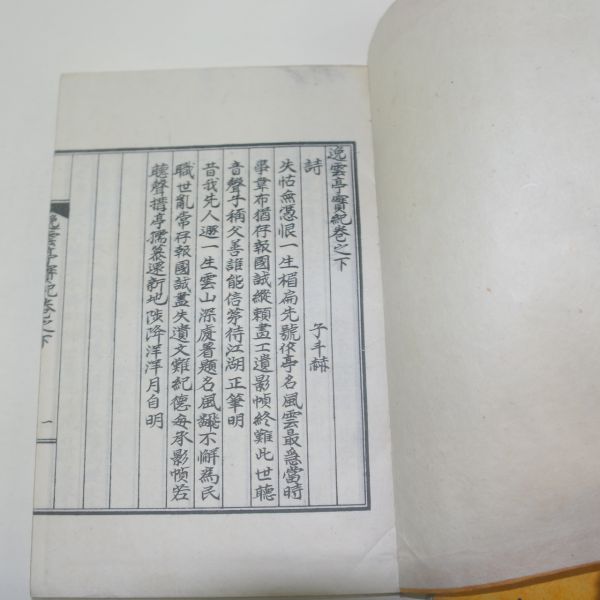 逸雲亭實紀卷之下
詩
子斗赫
失怙無憑恨一生楣扁先號依亭名風雲最急當時
事韋布猶存報國誠縱賴畫工遺影幀終難此世聽
音聲子稱父善誰能信第待江湖正筆明
昔我先人遯一生雲山深處署題名風飜不懈爲民
職世亂常存報國誠盡失遺文難紀德每承影幀若
聽聲揩亭孺慕遷新地陟降洋洋月自明
逸雲亭實紀卷之下
一